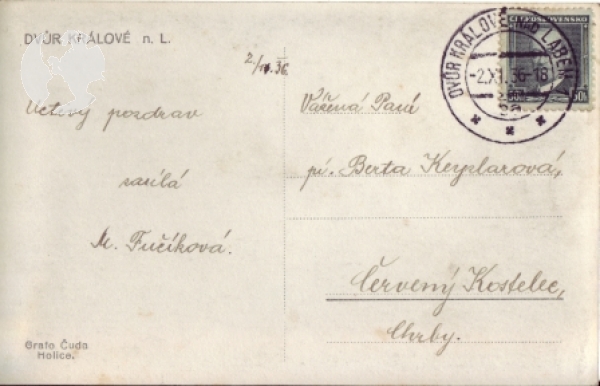 DVŮR KRÁLOVÉ n. L.
2/XI. 36
Uctivý pozdrav
zasílá
M. Fučíková.
Grafo Čuda
Holice.
ČESKOSLOVENSKO
DVŮR KRÁLOVÉ NAD LABEM
-2.XI.36-18
Vážená Paní
pí. Berta Keyzlarová,
Červený Kostelec,
Chrby.